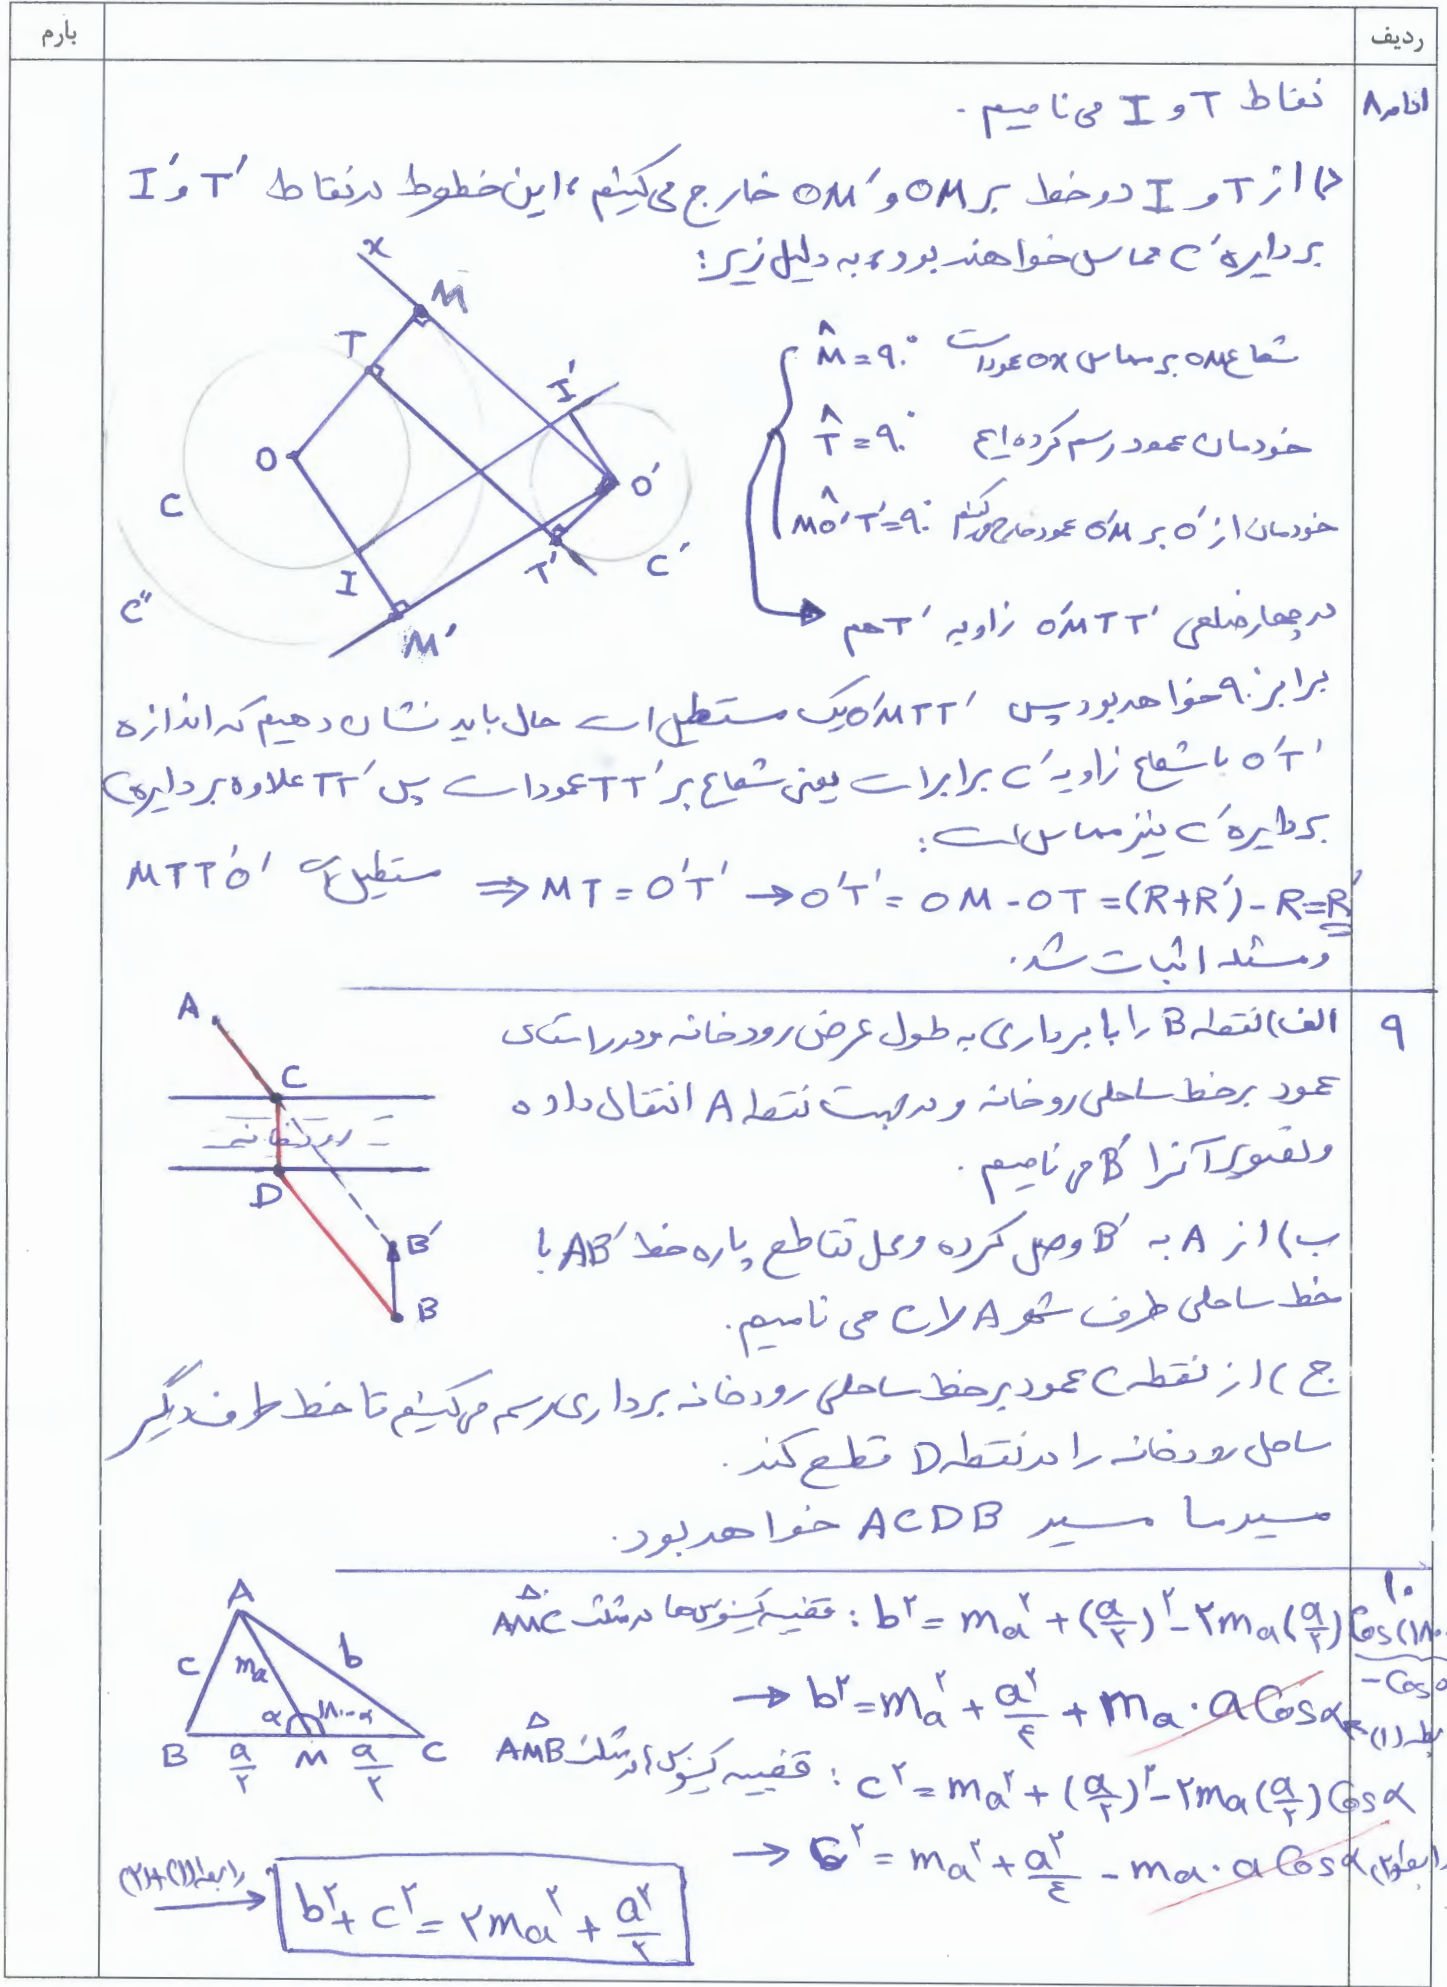 ردیف
بارم
ادامه ۸
نقاط T و I می نامیم .
د) از T و I دو خط بر OM و OM′ خارج می کنیم ، این خطوط در نقاط T′ و I′
بر دایره C′ مماس خواهند بود ، به دلیل زیر :
M̂ = ۹۰° شعاع OM بر مماس OX عمود است
T̂ = ۹۰° خودمان عمود رسم کرده ایم
MÔ′T′ = ۹۰° خودمان از O′ بر O′M عمود خارج می کنیم
در چهارضلعی O′MTT′ زاویه T′ هم
برابر ۹۰° خواهد بود پس O′MTT′ یک مستطیل است حال باید نشان دهیم که اندازه
O′T′ با شعاع زاویه C′ برابر است یعنی شعاع بر TT′ عمود است پس TT′ علاوه بر دایره C
بر دایره C′ نیز مماس است :
MTT′O′ مستطیل است ⇒ MT = O′T′ → O′T′ = OM - OT = (R+R′) - R = R′
و مسئله اثبات شد .
x
M
T
I′
O
O′
C
I
T′
C′
C″
M′
۹
الف) نقطه B را با برداری به طول عرض رودخانه و در راستای
عمود بر خط ساحلی روخانه و در جهت نقطه A انتقال داده
و تصویر آنرا B′ می نامیم .
ب) از A به B′ وصل کرده و محل تقاطع پاره خط AB′ با
خط ساحلی طرف شهر A را C می نامیم .
ج) از نقطه C عمود بر خط ساحلی رودخانه برداری رسم می کنیم تا خط طرف دیگر
ساحل رودخانه را در نقطه D قطع کند .
مسیر ما مسیر ACDB خواهد بود .
A
C
رودخانه
D
B′
B
۱۰
قضیه کسینوس ها در مثلث AMC : b² = mₐ² + (a/۲)² - ۲mₐ(a/۲) Cos(۱۸۰
-Cos α
→ b² = mₐ² + a²/۴ + mₐ · a Cos α (۱)
قضیه کسینوس ها در مثلث AMB : c² = mₐ² + (a/۲)² - ۲mₐ(a/۲) Cos α
→ c² = mₐ² + a²/۴ - mₐ · a Cos α رابطه (۲)
رابطه (۱)+(۲) → b² + c² = ۲mₐ² + a²/۲
A
c
mₐ
b
α
۱۸۰-α
B
a/۲
M
a/۲
C